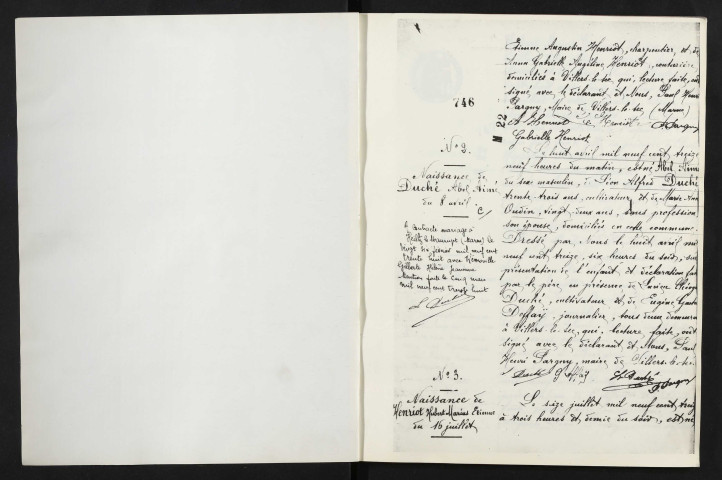 Etienne Augustin Henriot, charpentier, et de
Anna Gabrielle Angéline Henriot, couturière
domiciliés à Villers-le-sec qui, lecture faite, ont
signé avec le déclarant et Nous, Paul Henri
Pargny, Maire de Villers-le-sec (Marne)
A Henriot E. Henriot Pargny
Gabrielle Henriot
746
M 22
N° 2.
Naissance de
Duché Abel Aimé
du 8 avril
Le huit avril mil neuf cent treize
neuf heures du matin, est né Abel Aimé
du sexe masculin, de Léon Alfred Duché
trente trois ans, cultivateur et de Marie
Oudin, vingt deux ans, sans profession
son épouse, domiciliés en cette commune.
Dressé par Nous le huit avril mil
neuf cent treize, six heures du soir, sur
présentation de l'enfant et déclaration faite
par le père en présence de Lucien
Duché, cultivateur et de Eugène
Deffaÿ, journalier, tous deux demeurant
à Villers-le-sec, qui, lecture faite, ont
signé avec le déclarant et Nous, Paul
Henri Pargny, maire de Villers-le-sec.
Duché Deffaÿ Duché Pargny
a contracté mariage à
Heiltz le Maurupt (Marne) le
vingt six février mil neuf cent
trente huit avec
Gilberte Hélène Jeanne
Mention faite le cinq mars
mil neuf cent trente huit
N° 3.
Naissance de
Henriot Hubert Marius Etienne
du 16 juillet
Le seize juillet mil neuf cent treize
à trois heures et demie du soir, est né